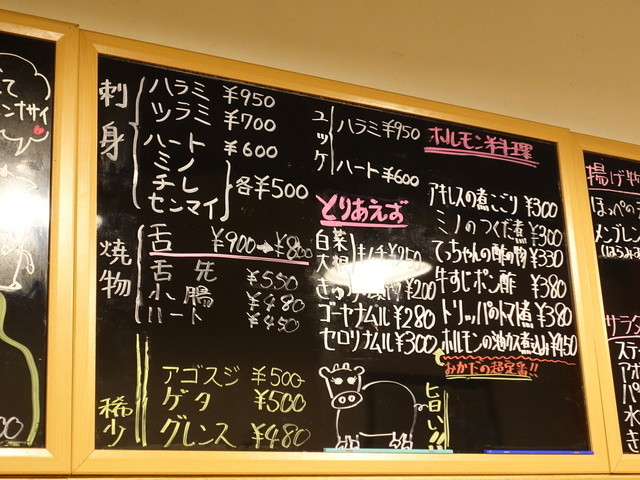 刺身
ハラミ ¥950
ツラミ ¥700
ハート ¥600
ミノ
チレ
センマイ
各¥500
焼物
舌 ¥900→¥800
舌先 ¥550
小腸 ¥480
ハート ¥450
稀少
アゴスジ ¥500
ゲタ ¥500
グレンス ¥480
ユッケ
ハラミ ¥950
ハート ¥600
とりあえず
白菜
大根
キムチ ¥250
¥200
ゴーヤナムル ¥280
セロリナムル ¥300
旨い!!
ホルモン料理
アキレスの煮こごり ¥300
ミノのつくだ煮 ¥300
てっちゃんの酢の物 ¥330
牛すじポン酢 ¥380
トリッパのトマト煮 ¥380
ホルモンの油カス煮込み ¥450
おかだの超定番!!
揚げ物
ほっぺの
メンブレン
(はらみ
サラダ
ステ
アボ
パ
水
き